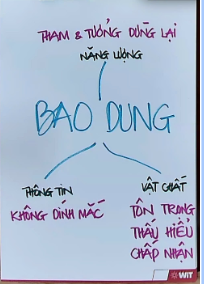 THAM & TƯỞNG DỪNG LẠI
NĂNG LƯỢNG
BAO DUNG
THÔNG TIN
KHÔNG DÍNH MẮC
VẬT CHẤT
TÔN TRỌNG
THẤU HIỂU
CHẤP NHẬN
WIT